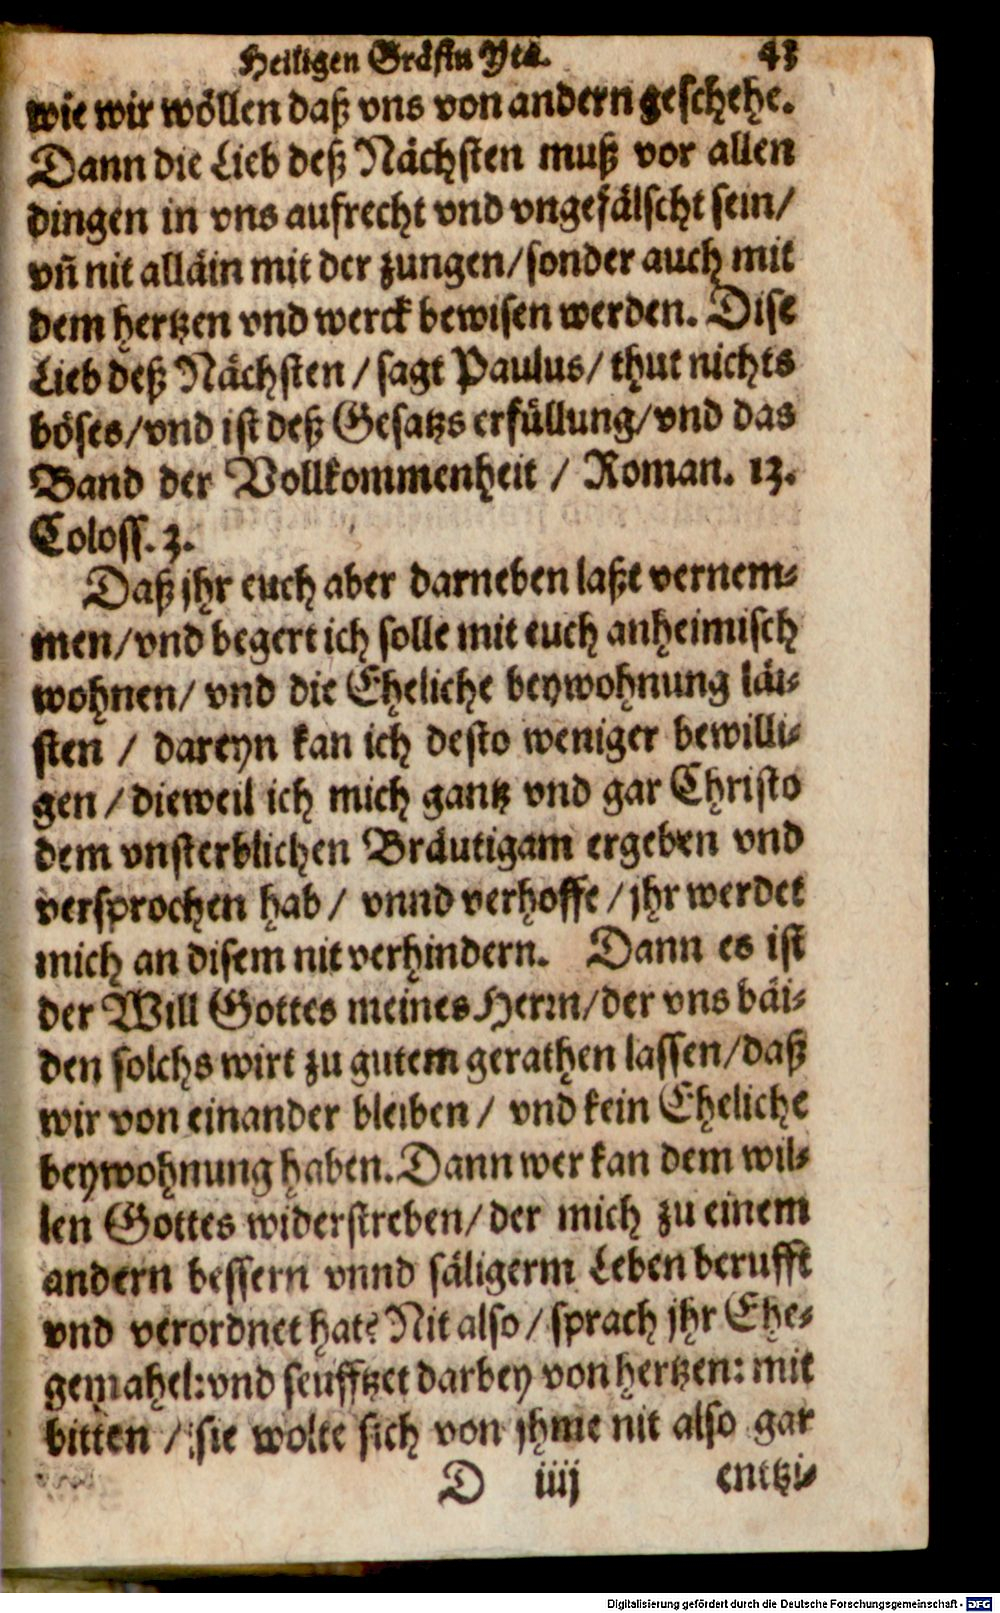 Heiligen Gräfin Yta. 43
wie wir wöllen daß vns von andern geschehe.
Dann die Lieb deß Nächsten muß vor allen
dingen in vns aufrecht vnd vngefälscht sein/
vñ nit alläin mit der zungen/sonder auch mit
dem hertzen vnd werck bewisen werden. Dise
Lieb deß Nächsten / sagt Paulus/ thut nichts
böses/vnd ist deß Gesatzs erfüllung/vnd das
Band der Vollkommenheit / Roman. 13.
Coloss. 3.
Daß jhr euch aber darneben laßt vernem-
men/vnd begert ich solle mit euch anheimisch
wohnen/ vnd die Eheliche beywohnung läi-
sten / dareyn kan ich desto weniger bewilli-
gen / dieweil ich mich gantz vnd gar Christo
dem vnsterblichen Bräutigam ergeben vnd
versprochen hab / vnnd verhoffe / jhr werdet
mich an disem nit verhindern. Dann es ist
der Will Gottes meines Herrn/der vns bäi-
den solchs wirt zu gutem gerathen lassen/daß
wir von einander bleiben / vnd kein Eheliche
beywohnung haben. Dann wer kan dem wil-
len Gottes widerstreben/ der mich zu einem
andern bessern vnnd säligerm Leben berufft
vnd verordnet hat? Nit also / sprach jhr Ehe-
gemahel: vnd seufftzet darbey von hertzen: mit
bitten / sie wolte sich von jhme nit also gar
D iiij entzi-
Digitalisierung gefördert durch die Deutsche Forschungsgemeinschaft - DFG